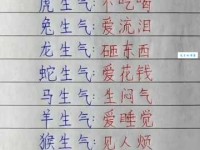 虎生气:不吃喝
兔生气:爱流泪
龙生气:砸东西
蛇生气:爱花钱
马生气:生闷气
羊生气:爱睡觉
猴生气:见人烦